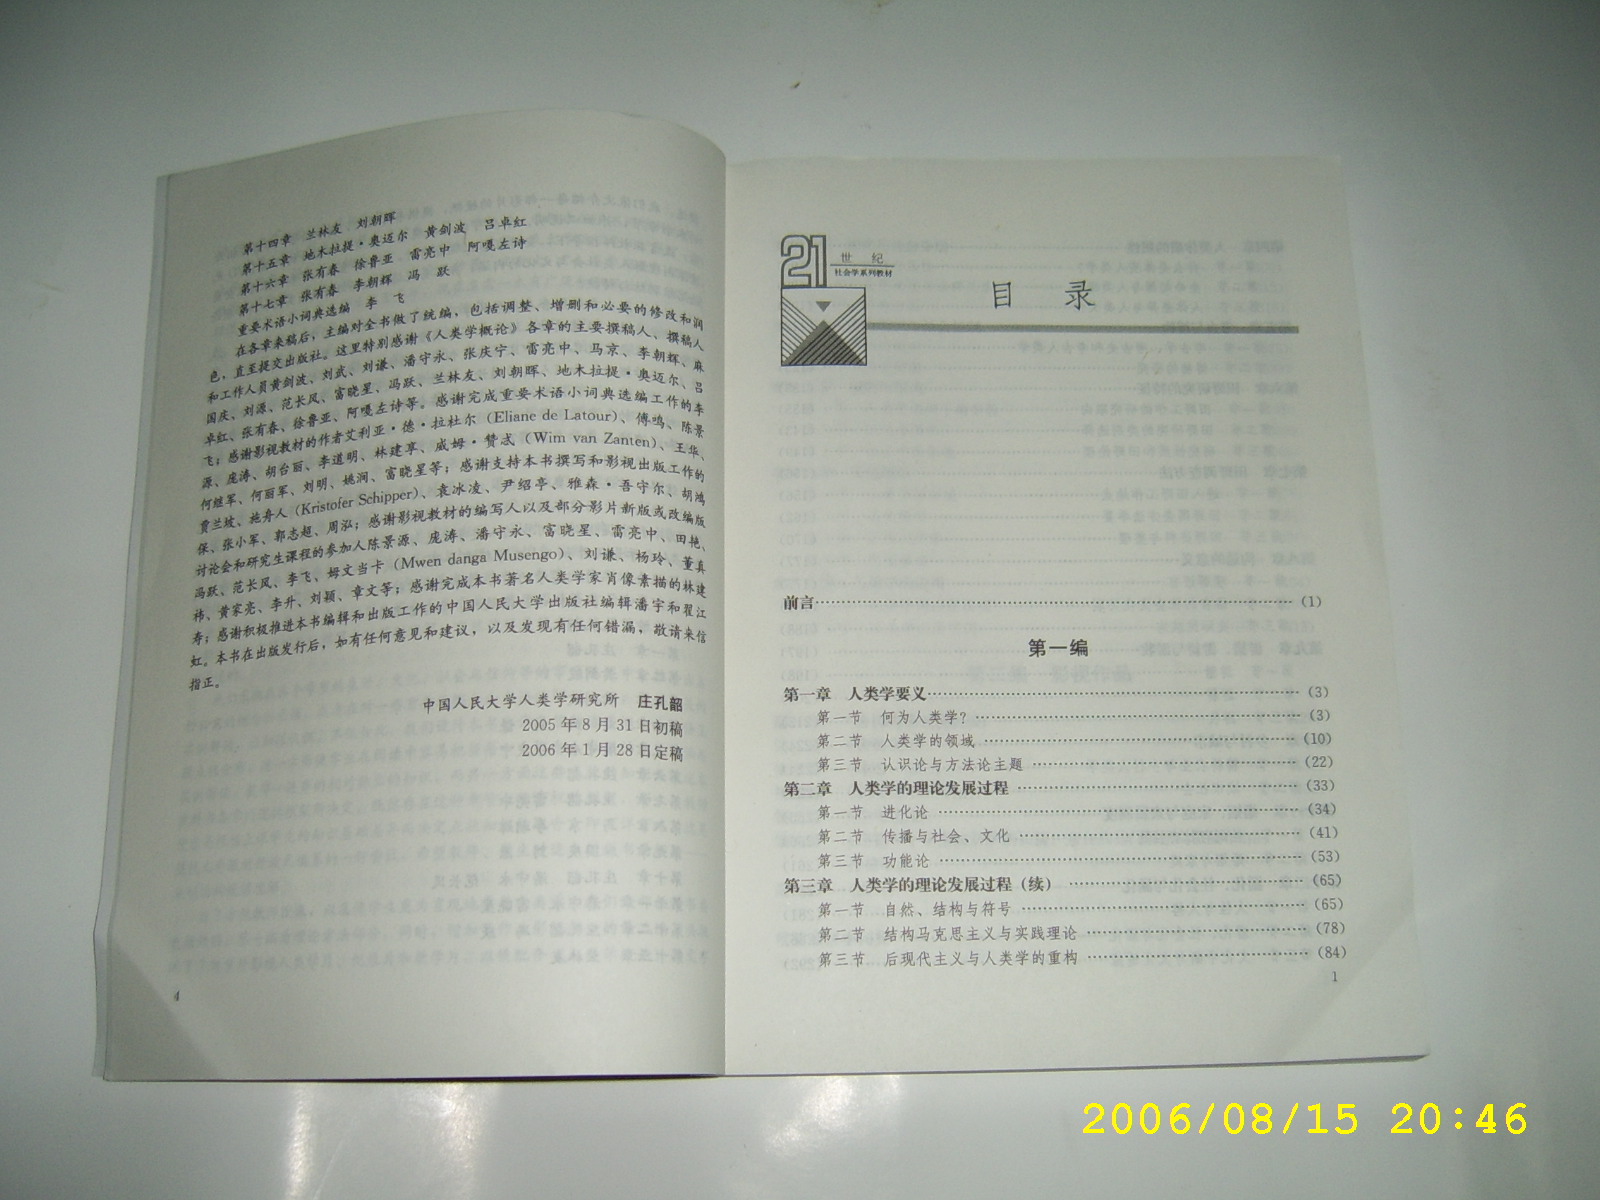 第十四章　兰林友　刘朝晖
第十五章　地木拉提·奥迈尔　黄剑波　吕卓红
第十六章　张有春　徐鲁亚　雷亮中　阿嘎左诗
第十七章　张有春　李朝辉　冯　跃
重要术语小词典选编　李　飞
在各章来稿后，主编对全书做了统编，包括调整、增删和必要的修改和润
色，直至提交出版社。这里特别感谢《人类学概论》各章的主要撰稿人、撰稿人
和工作人员黄剑波、刘武、刘谦、潘守永、张庆宁、雷亮中、马京、李朝辉、麻
国庆、刘源、范长风、富晓星、冯跃、兰林友、刘朝晖、地木拉提·奥迈尔、吕
卓红、张有春、徐鲁亚、阿嘎左诗等。感谢完成重要术语小词典选编工作的李
飞；感谢影视教材的作者艾利亚·德·拉杜尔（Eliane de Latour）、傅鸣、陈景
源、庞涛、胡台丽、李道明、林建享、威姆·赞忒（Wim van Zanten）、王华、
何继军、何丽军、刘明、姚洞、富晓星等；感谢支持本书撰写和影视出版工作的
贾兰坡、施舟人（Kristofer Schipper）、袁冰凌、尹绍亭、雅森·吾守尔、胡鸿
保、张小军、郭志超、周泓；感谢影视教材的编写人以及部分影片新版或改编版
讨论会和研究生课程的参加人陈景源、庞涛、潘守永、富晓星、雷亮中、田艳、
冯跃、范长风、李飞、姆文当卡（Mwen danga Musengo）、刘谦、杨玲、董真
祎、黄家亮、李升、刘颖、章文等；感谢完成本书著名人类学家肖像素描的林建
寿；感谢积极推进本书编辑和出版工作的中国人民大学出版社编辑潘宇和翟江
虹。本书在出版发行后，如有任何意见和建议，以及发现有任何错漏，敬请来信
指正。
中国人民大学人类学研究所　庄孔韶
2005 年 8 月 31 日初稿
2006 年 1 月 28 日定稿
4
21
世　纪
社会学系列教材
目　录
前言……………………（1）
第一编
第一章　人类学要义……………………（3）
第一节　何为人类学？……………………（3）
第二节　人类学的领域……………………（10）
第三节　认识论与方法论主题……………………（22）
第二章　人类学的理论发展过程……………………（33）
第一节　进化论……………………（34）
第二节　传播与社会、文化……………………（41）
第三节　功能论……………………（53）
第三章　人类学的理论发展过程（续）……………………（65）
第一节　自然、结构与符号……………………（65）
第二节　结构马克思主义与实践理论……………………（78）
第三节　后现代主义与人类学的重构……………………（84）
1
2006/08/15 20:46